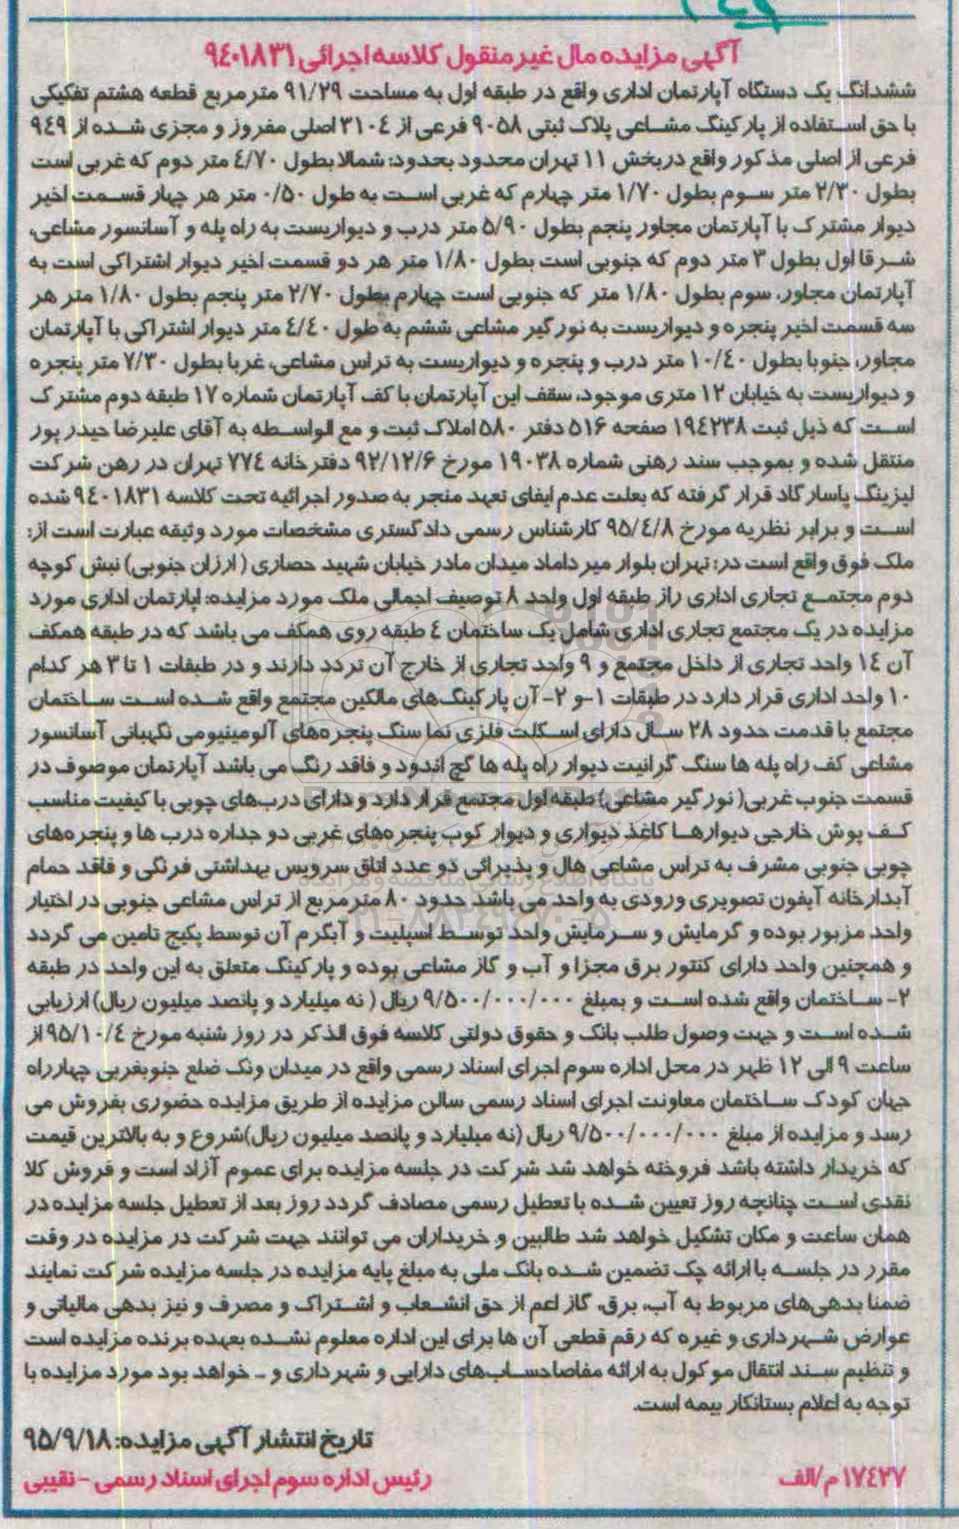 آگهی مزایده مال غیر منقول کلاسه اجرائی ۹۴۰۱۸۳۱
ششدانگ یک دستگاه آپارتمان اداری واقع در طبقه اول به مساحت ۹۱/۲۹ مترمربع قطعه هشتم تفکیکی
با حق استفاده از پارکینگ مشاعی پلاک ثبتی ۹۰۵۸ فرعی از ۳۱۰۴ اصلی مفروز و مجزی شده از ۹۴۹
فرعی از اصلی مذکور واقع دربخش ۱۱ تهران محدود بحدود: شمالا بطول ۴/۷۰ متر دوم که غربی است
بطول ۲/۳۰ متر سوم بطول ۱/۷۰ متر چهارم که غربی است به طول ۰/۵۰ متر هر چهار قسمت اخیر
دیوار مشترک با آپارتمان مجاور پنجم بطول ۵/۹۰ متر درب و دیواریست به راه پله و آسانسور مشاعی،
شرقا اول بطول ۳ متر دوم که جنوبی است بطول ۱/۸۰ متر هر دو قسمت اخیر دیوار اشتراکی است به
آپارتمان مجاور، سوم بطول ۱/۸۰ متر که جنوبی است چهارم بطول ۲/۷۰ متر پنجم بطول ۱/۸۰ متر هر
سه قسمت اخیر پنجره و دیواریست به نورگیر مشاعی ششم به طول ۴/۴۰ متر دیوار اشتراکی با آپارتمان
مجاور، جنوبا بطول ۱۰/۴۰ متر درب و پنجره و دیواریست به تراس مشاعی، غربا بطول ۷/۳۰ متر پنجره
و دیواریست به خیابان ۱۲ متری موجود، سقف این آپارتمان با کف آپارتمان شماره ۱۷ طبقه دوم مشترک
است که ذیل ثبت ۱۹۴۲۳۸ صفحه ۵۱۶ دفتر ۵۸۰ املاک ثبت و مع الواسطه به آقای علیرضا حیدر پور
منتقل شده و بموجب سند رهنی شماره ۱۹۰۳۸ مورخ ۹۲/۱۲/۶ دفترخانه ۷۷۴ تهران در رهن شرکت
لیزینگ پاسارگاد قرار گرفته که بعلت عدم ایفای تعهد منجر به صدور اجرائیه تحت کلاسه ۹۴۰۱۸۳۱ شده
است و برابر نظریه مورخ ۹۵/۴/۸ کارشناس رسمی دادگستری مشخصات مورد وثیقه عبارت است از:
ملک فوق واقع است در: تهران بلوار میرداماد میدان مادر خیابان شهید حصاری ( ارزان جنوبی) نبش کوچه
دوم مجتمع تجاری اداری راز طبقه اول واحد ۸ توصیف اجمالی ملک مورد مزایده: اپارتمان اداری مورد
مزایده در یک مجتمع تجاری اداری شامل یک ساختمان ۴ طبقه روی همکف می باشد که در طبقه همکف
آن ۱۴ واحد تجاری از داخل مجتمع و ۹ واحد تجاری از خارج آن تردد دارند و در طبقات ۱ تا ۳ هر کدام
۱۰ واحد اداری قرار دارد در طبقات ۱-و ۲- آن پارکینگ‌های مالکین مجتمع واقع شده است ساختمان
مجتمع با قدمت حدود ۲۸ سال دارای اسکلت فلزی نما سنگ پنجره‌های آلومینیومی نگهبانی آسانسور
مشاعی کف راه پله ها سنگ گرانیت دیوار راه پله ها گچ اندود و فاقد رنگ می باشد آپارتمان موصوف در
قسمت جنوب غربی( نورگیر مشاعی) طبقه اول مجتمع قرار دارد و دارای درب‌های چوبی با کیفیت مناسب
کف پوش خارجی دیوارها کاغذ دیواری و دیوار کوب پنجره‌های غربی دو جداره درب ها و پنجره‌های
چوبی جنوبی مشرف به تراس مشاعی هال و پذیرائی دو عدد اتاق سرویس بهداشتی فرنگی و فاقد حمام
آبدارخانه آیفون تصویری ورودی به واحد می باشد حدود ۸۰ مترمربع از تراس مشاعی جنوبی در اختیار
واحد مزبور بوده و گرمایش و سرمایش واحد توسط اسپلیت و آبگرم آن توسط پکیج تامین می گردد
و همچنین واحد دارای کنتور برق مجزا و آب و گاز مشاعی بوده و پارکینگ متعلق به این واحد در طبقه
۲- ساختمان واقع شده است و بمبلغ ۹/۵۰۰/۰۰۰/۰۰۰ ریال ( نه میلیارد و پانصد میلیون ریال) ارزیابی
شده است و جهت وصول طلب بانک و حقوق دولتی کلاسه فوق الذکر در روز شنبه مورخ ۹۵/۱۰/۴ از
ساعت ۹ الی ۱۲ ظهر در محل اداره سوم اجرای اسناد رسمی واقع در میدان ونک ضلع جنوبغربی چهارراه
جهان کودک ساختمان معاونت اجرای اسناد رسمی سالن مزایده از طریق مزایده حضوری بفروش می
رسد و مزایده از مبلغ ۹/۵۰۰/۰۰۰/۰۰۰ ریال (نه میلیارد و پانصد میلیون ریال)شروع و به بالاترین قیمت
که خریدار داشته باشد فروخته خواهد شد شرکت در جلسه مزایده برای عموم آزاد است و فروش کلا
نقدی است چنانچه روز تعیین شده با تعطیل رسمی مصادف گردد روز بعد از تعطیل جلسه مزایده در
همان ساعت و مکان تشکیل خواهد شد طالبین و خریداران می توانند جهت شرکت در مزایده در وقت
مقرر در جلسه با ارائه چک تضمین شده بانک ملی به مبلغ پایه مزایده در جلسه مزایده شرکت نمایند
ضمنا بدهی‌های مربوط به آب، برق، گاز اعم از حق انشعاب و اشتراک و مصرف و نیز بدهی مالیاتی و
عوارض شهرداری و غیره که رقم قطعی آن ها برای این اداره معلوم نشده بعهده برنده مزایده است
و تنظیم سند انتقال موکول به ارائه مفاصاحساب‌های دارایی و شهرداری و ... خواهد بود مورد مزایده با
توجه به اعلام بستانکار بیمه است.
تاریخ انتشار آگهی مزایده: ۹۵/۹/۱۸
۱۷۴۲۷ م/الف رئیس اداره سوم اجرای اسناد رسمی - نقیبی